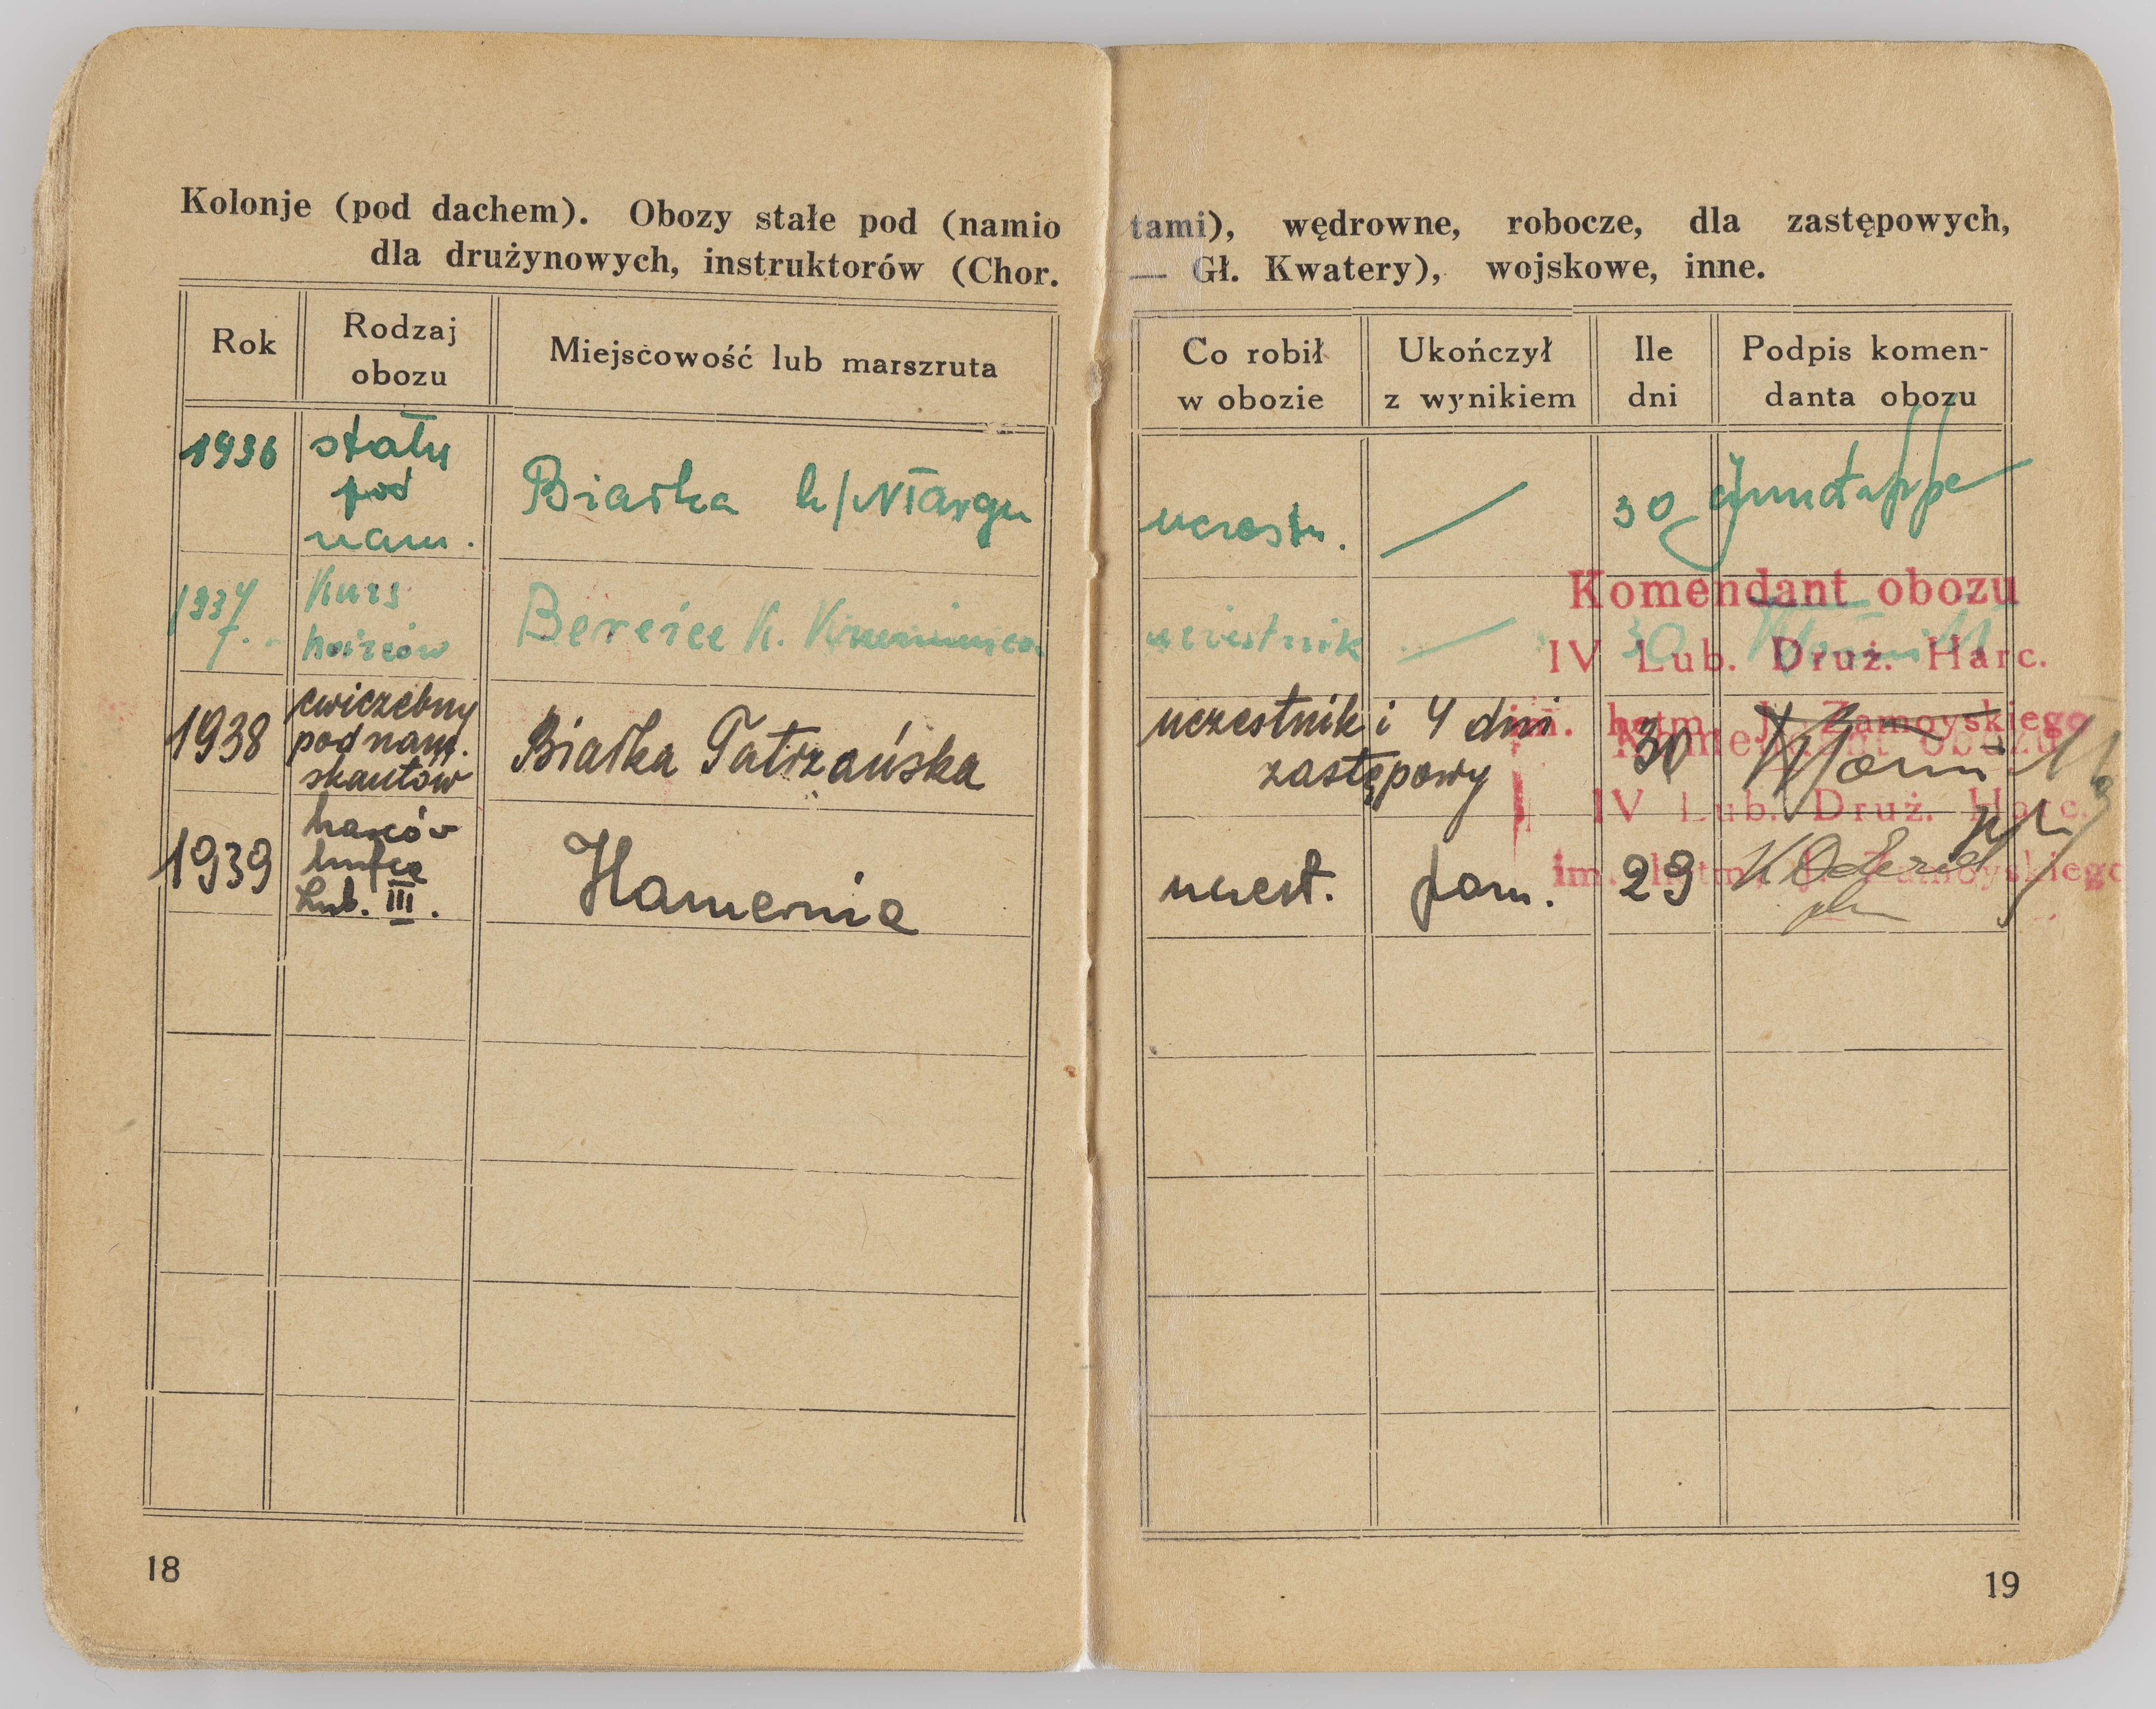 Kolonje (pod dachem). Obozy stałe pod (namio
dla drużynowych, instruktorów (Chor.
Rok
Rodzaj
obozu
Miejscowość lub marszruta
1936
stały
pod
nam.
Białka k/NTargu
1937
r.
Kurs
harców
Bereżce K. Krzemieńca
1938
ćwiczebny
pod nam.
skautów
Białka Tatrzańska
1939
harców
hufca
Lub. III.
Hamernia
18
tami), wędrowne, robocze, dla zastępowych,
— Gł. Kwatery), wojskowe, inne.
Co robił
w obozie
Ukończył
z wynikiem
Ile
dni
Podpis komen-
danta obozu
uczestn.
30
Komendant obozu
uczestnik
30
IV Lub. Druż. Harc.
im. hetm. J. Zamoyskiego
uczestnik i 4 dni
zastępowy
30
Komendant obozu
IV Lub. Druż. Harc.
im. hetm. J. Zamoyskiego
uczest.
pom.
29
19